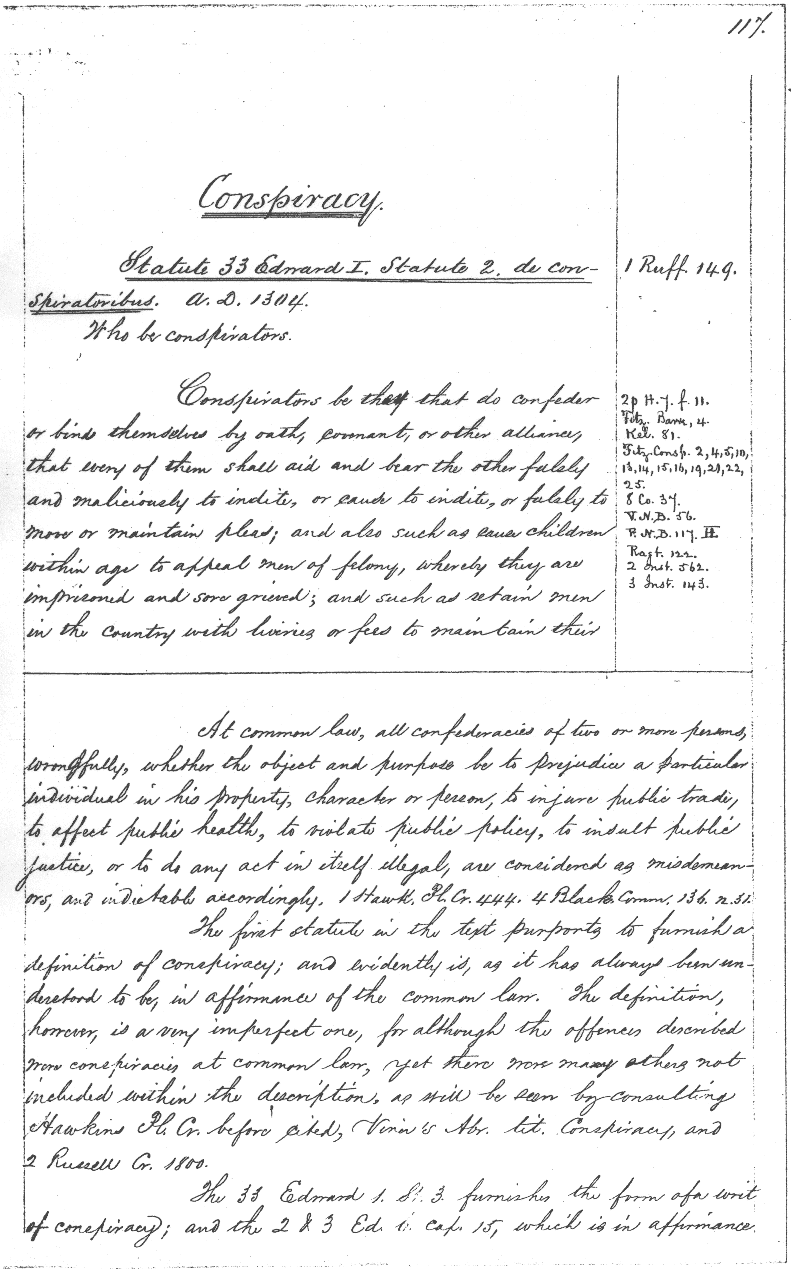 117.
Conspiracy.
Statute 33 Edward I. Statute 2. de con-
spiratoribus. A. D. 1304.
Who be conspirators.
1 Ruff. 149.
Conspirators be they that do confeder
or bind themselves by oath, covenant, or other alliance,
that every of them shall aid and bear the other falsly
and maliciously to indite, or cause to indite, or falsly to
move or maintain pleas; and also such as cause children
within age to appeal men of felony, whereby they are
imprisoned and sore grieved; and such as retain men
in the country with liveries or fees to maintain their
2p H. 7. f. 11.
Fitz. Barre, 4.
Kel. 81.
Fitz. Consp. 2, 4, 5, 10,
13, 14, 15, 16, 19, 20, 22,
25.
8 Co. 37.
V. N. B. 56.
F. N. B. 117. H
Rast. 122.
2 Inst. 562.
3 Inst. 143.
At common law, all confederacies of two or more persons,
wrongfully, whether the object and purpose be to prejudice a particular
individual in his property, character or person, to injure public trade,
to affect public health, to violate public policy, to insult public
justice, or to do any act in itself illegal, are considered as misdemean-
ors, and indictable accordingly. 1 Hawk. Pl. Cr. 444. 4 Black. Comm. 136. n. 31.
The first statute in the text purports to furnish a
definition of conspiracy; and evidently is, as it has always been un-
derstood to be, in affirmance of the common law. The definition,
however, is a very imperfect one, for although the offences described
were conspiracies at common law, yet there were many others not
included within the description, as will be seen by consulting
Hawkins Pl. Cr. before cited, Viner's Abr. tit. Conspiracy, and
2 Russell Cr. 1800.
The 33 Edward 1. St. 3. furnishes the form of a writ
of conspiracy; and the 2 & 3 Ed. 6. cap. 15, which is in affirmance